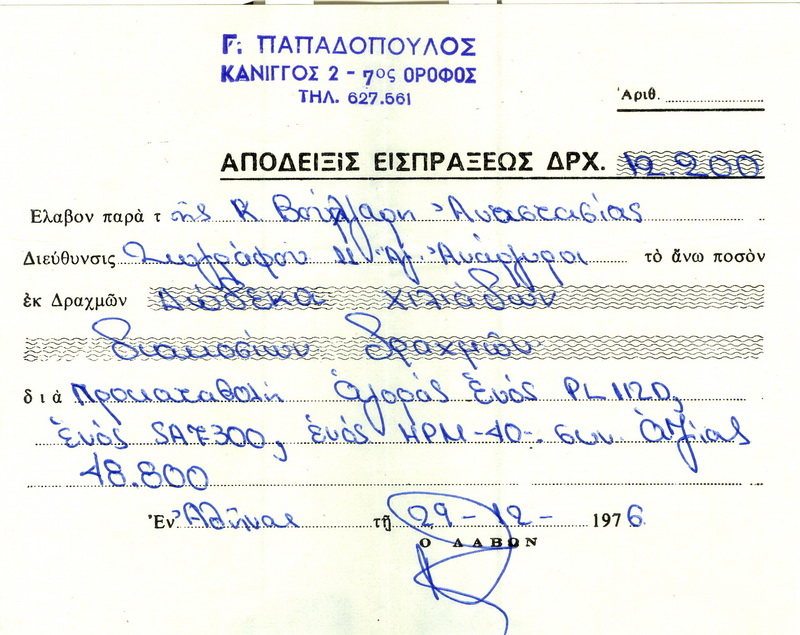 Γ. ΠΑΠΑΔΟΠΟΥΛΟΣ
ΚΑΝΙΓΓΟΣ 2 - 7ος ΟΡΟΦΟΣ
ΤΗΛ. 627.561
Ἀριθ.
ΑΠΟΔΕΙΞΙΣ ΕΙΣΠΡΑΞΕΩΣ ΔΡΧ. 12.200
Ἔλαβον παρὰ τ ῆς Κ Βούλγαρη Ἀναστασίας
Διεύθυνσις Ζωγράφου 11 Ἁγ. Ἀνάργυροι τὸ ἄνω ποσὸν
ἐκ Δραχμῶν Δώδεκα χιλιάδων
διακοσίων δραχμῶν
διὰ Προκαταβολή ἀγορᾶς ἑνός PL 112D,
ἑνός SAE300, ἑνός HPM-40-. συν. ἀξίας
48.800
Ἐν Ἀθήναις τῇ 29 - 12 - 1976
Ο ΛΑΒΩΝ